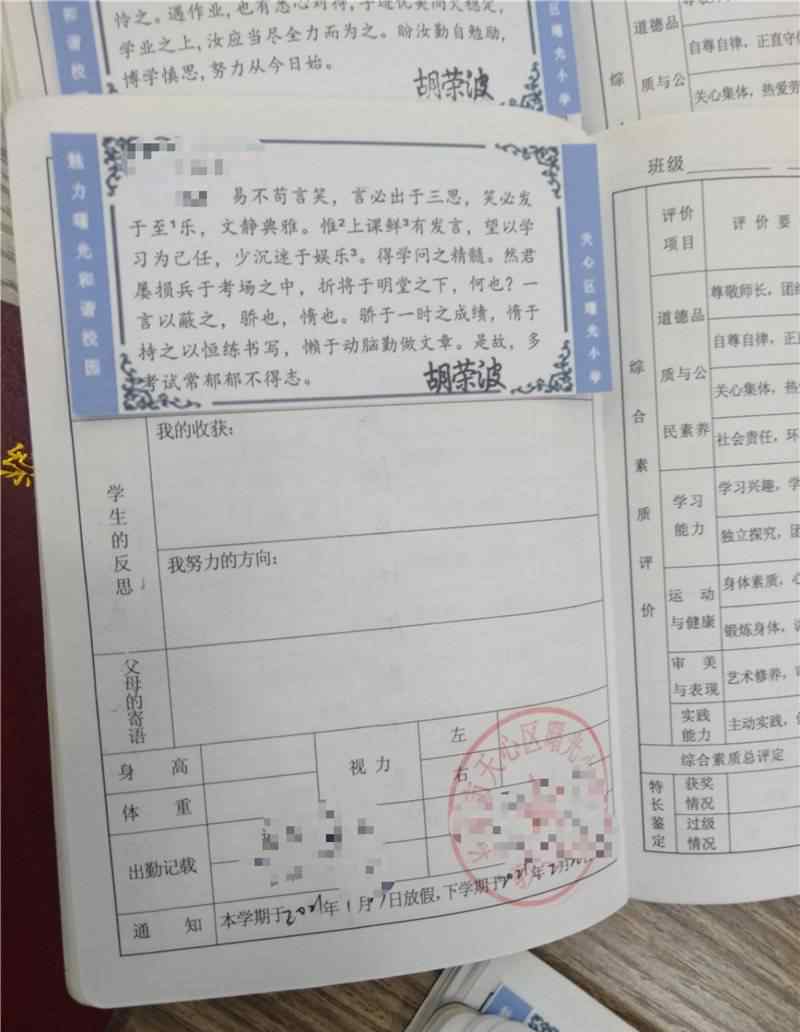 恃之。遇作业，也有悉心对待，
学业之上，汝应当尽全力而为之。盼汝勤自勉励，
博学慎思，努力从今日始。
胡荣波
和谐校
天心区曙光小学
综
道德品
质与公
自尊自律，正直守
关心集体，热爱劳
魅力曙光和谐校园
易不苟言笑，言必出于三思，笑必发
于至¹乐，文静典雅。惟²上课鲜³有发言，望以学
习为己任，少沉迷于娱乐³。得学问之精髓。然君
屡损兵于考场之中，折将于明堂之下，何也？一
言以蔽之，骄也，惰也。骄于一时之成绩，惰于
持之以恒练书写，懒于动脑勤做文章。是故，多
考试常郁郁不得志。
胡荣波
天心区曙光小学
学生的反思
我的收获：
我努力的方向：
父母的寄语
身高
体重
视力
左
右
出勤记载
通知
本学期于2021年1月 日放假，下学期于2021年2月
天心区曙光
班级
评价项目
评价要
综合素质评价
道德品质与公民素养
尊敬师长，团结
自尊自律，正直
关心集体，热
社会责任，环
学习能力
学习兴趣，学
独立探究，团
运动与健康
身体素质，心
锻炼身体，
审美与表现
艺术修养，
实践能力
主动实践，
综合素质总评定
特长鉴定
获奖情况
过级情况